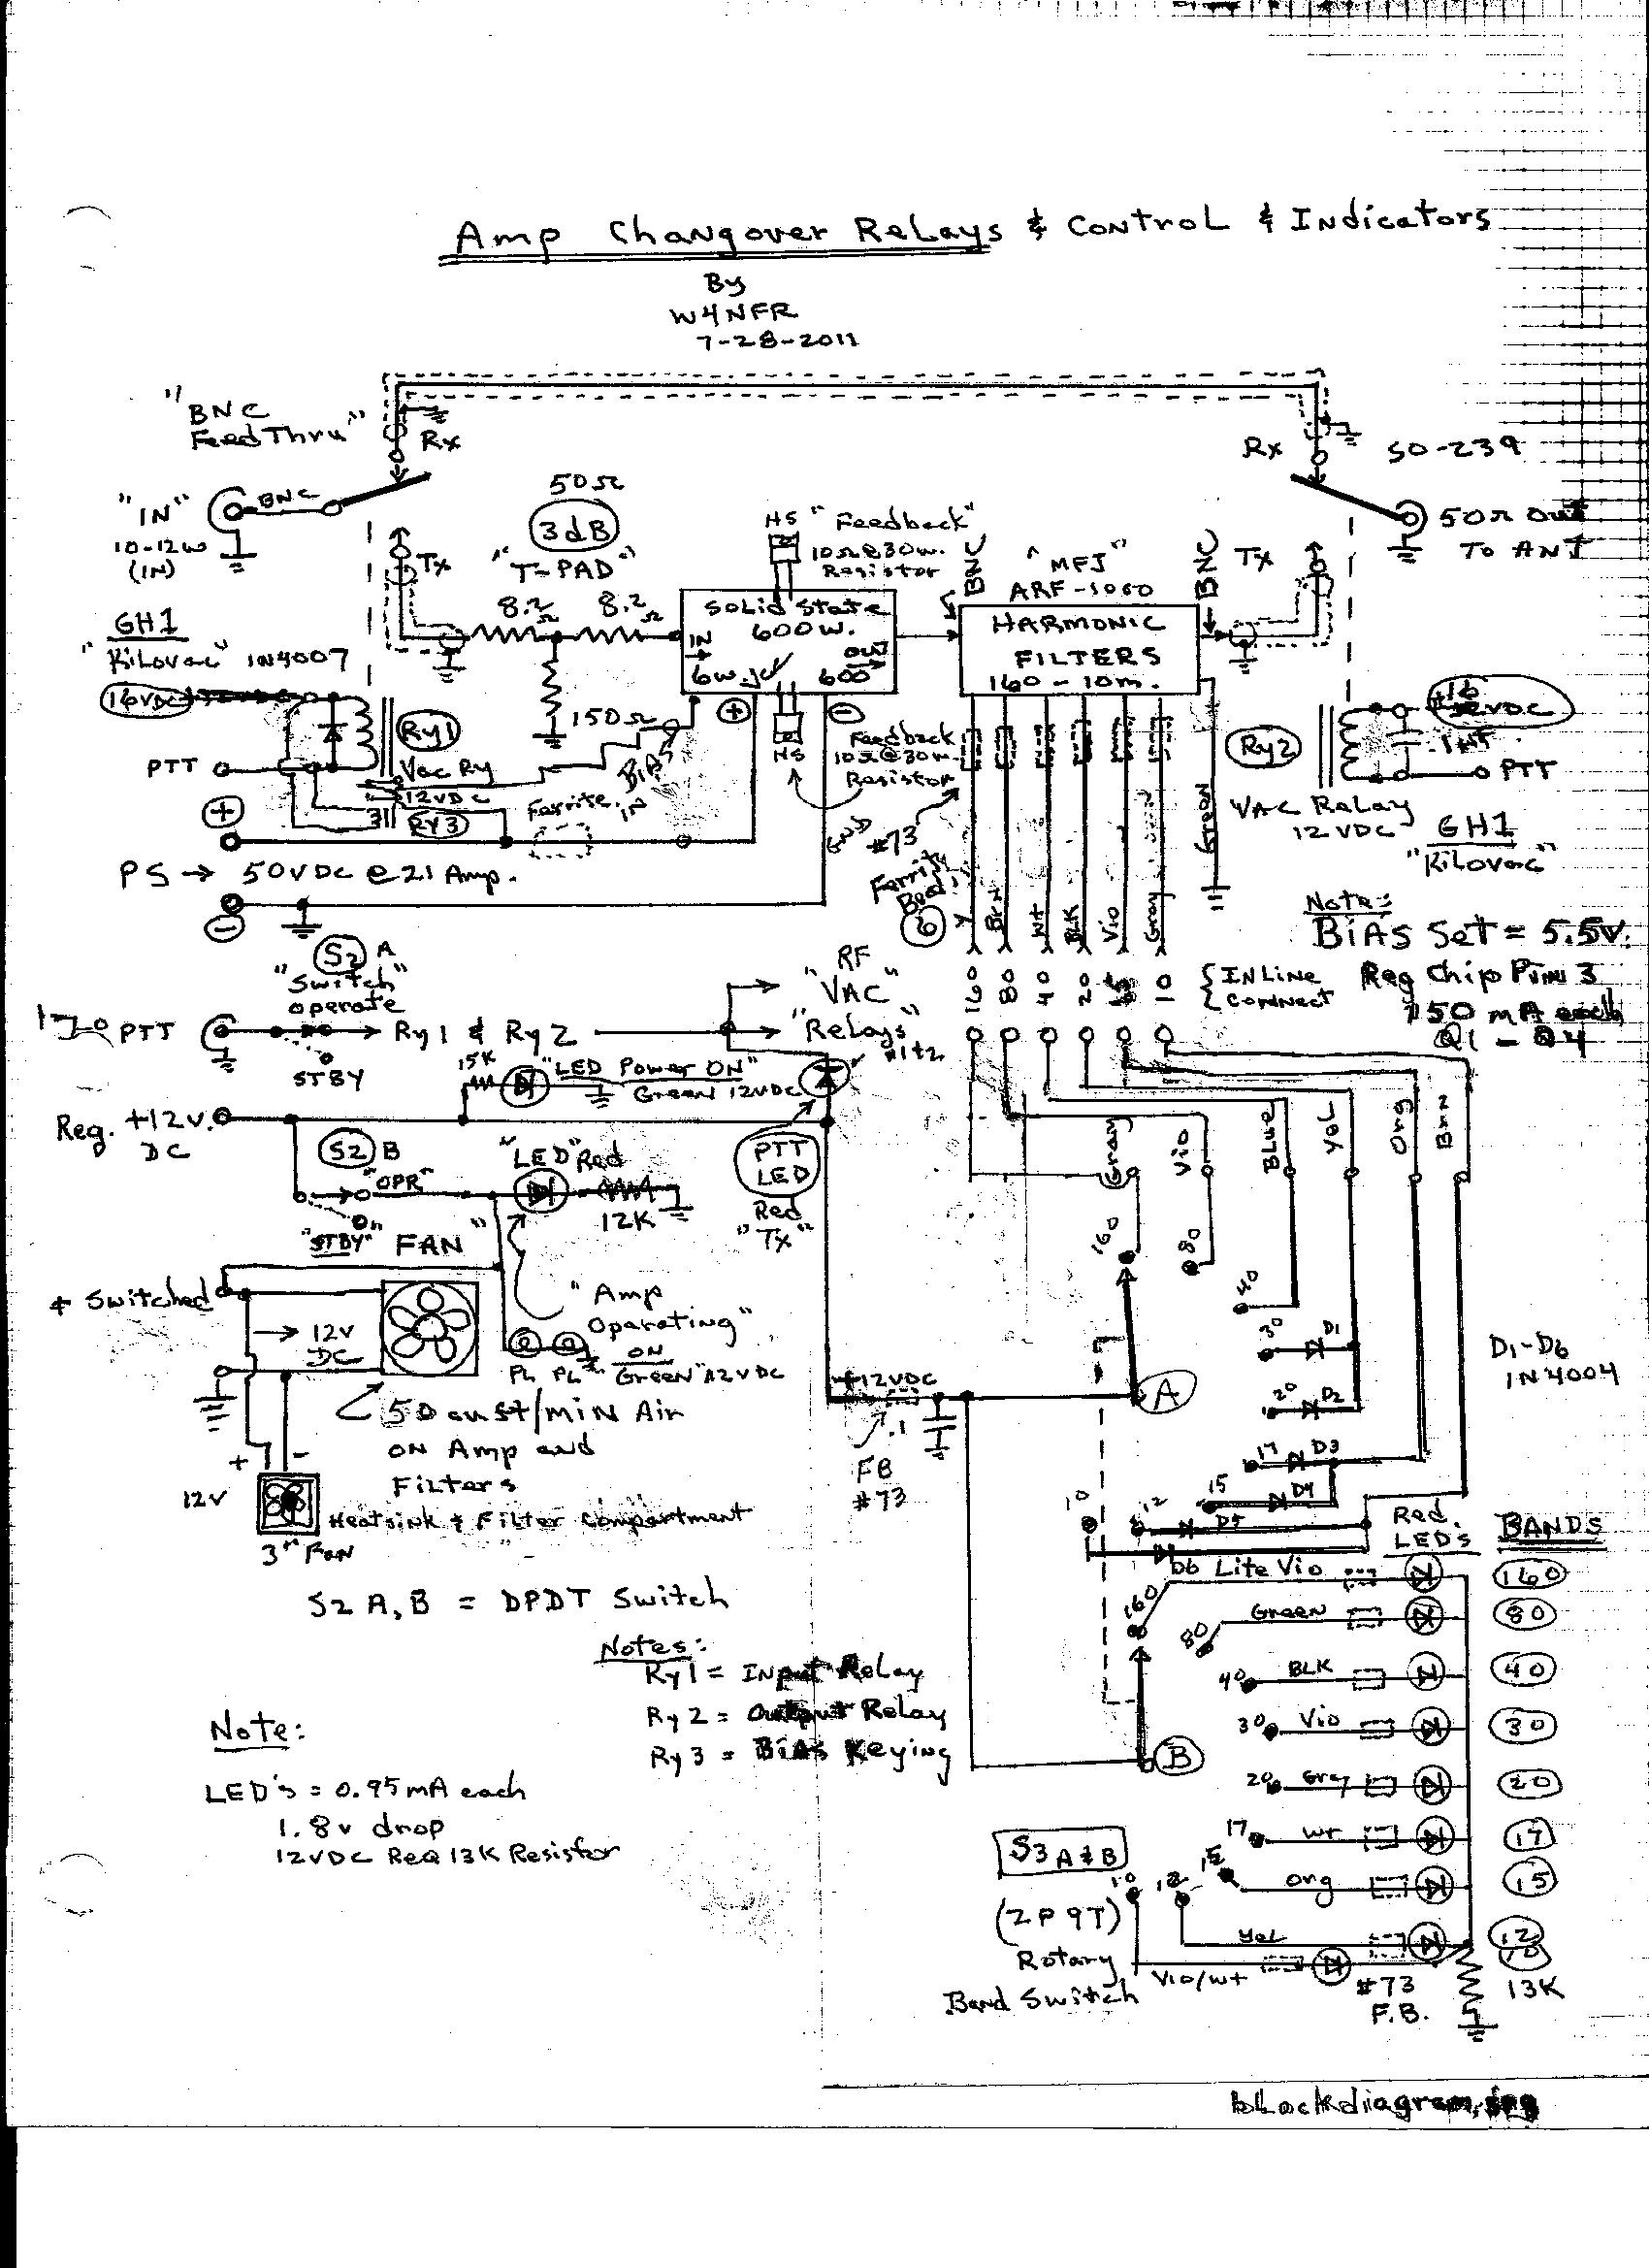 Amp Changover Relays & Control & Indicators
By
W4NFR
7-28-2011
"BNC
Feed Thru"
Rx
Rx
SO-239
"IN"
BNC
10-12w
(IN)
Tx
50Ω
3dB
"T-PAD"
8.2Ω
8.2Ω
150Ω
HS
"Feedback"
10Ω@30w.
Resistor
BNC
"MFJ"
ARF-1060
BNC
Tx
50Ω Out
To ANT
Solid State
600w.
IN
OUT
6w.
600
HARMONIC
FILTERS
160-10m.
GH1
"Kilovac"
1N4007
16VDC
Ry1
PTT
Vac Ry
12VDC
RY3
+
Ferrite
BIAS IN
+
-
HS
Feedback
10Ω@30w.
Resistor
#73
Ferrite
Bead
6
Y
Brn
Wt
BLK
Vio
Gray
Green
Ry2
VAC Relay
12VDC
+16
.1
PTT
GH1
"Kilovac"
PS → 50VDC @ 21 Amp.
-
Note:
BIAS Set = 5.5V.
Reg Chip Pin 3
150 mA each
Q1 - Q4
S2 A
"Switch"
operate
PTT
Ry1 & Ry2
STBY
RF
"VAC"
"Relays"
160
80
40
20
15
10
INLine
Connect
15K
"LED Power ON"
Green 12VDC
Reg. +12V.
DC
PTT
LED
Red
"Tx"
S2 B
"OPR"
"STBY"
"LED" Red
12K
Gray
Vio
Blue
Yel
Org
Brn
FAN
+ Switched
12V
DC
"Amp
Operating"
ON
PL PL
Green 12VDC
50 cu ft/min Air
on Amp and
Filters
+
-
12V
Heatsink & Filter Compartment
3" Fan
+12VDC
.1
FB
#73
A
160
80
40
30
D1
20
D2
17
D3
15
D4
12
D5
10
D6
D1-D6
1N4004
S2 A, B = DPDT Switch
Notes:
Ry1 = Input Relay
Ry2 = Output Relay
Ry3 = BIAS Keying
Note:
LED's = 0.95mA each
1.8v drop
12VDC Req 13K Resistor
Red.
LEDs
BANDS
160
Lite Vio
160
80
Green
80
40
BLK
40
30
Vio
30
20
Gry
20
17
Wt
17
15
Org
15
12
Yel
12
10
Vio/Wt
10
B
S3 A&B
(2P 9T)
Rotary
Band Switch
#73
F.B.
13K